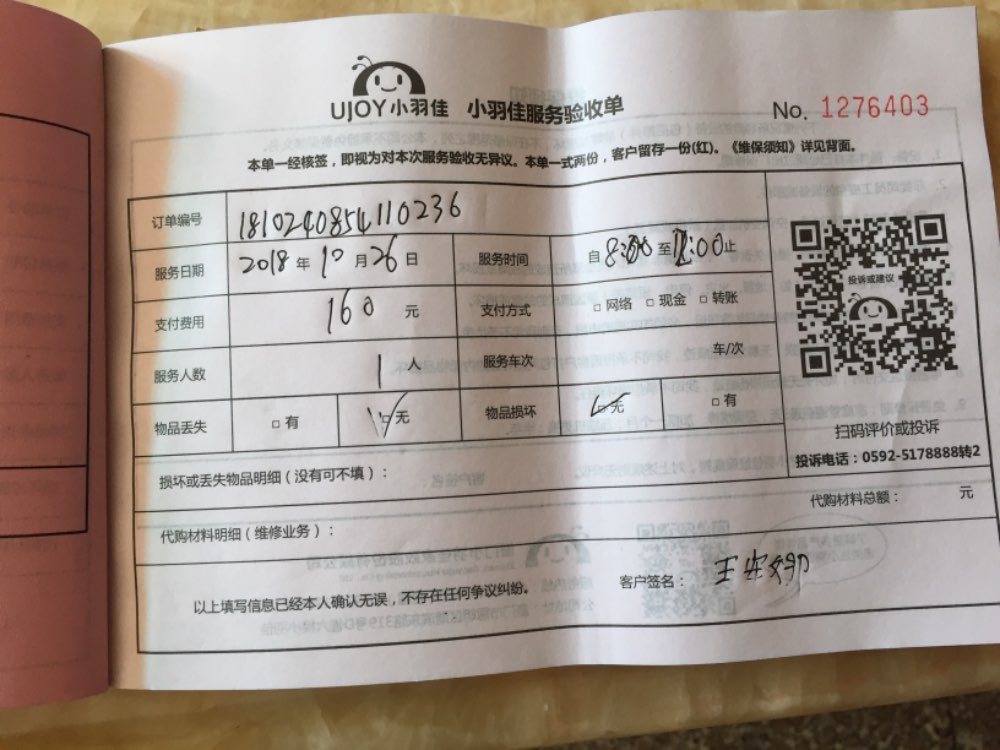 UJOY小羽佳 小羽佳服务验收单 No. 1276403
本单一经核签，即视为对本次服务验收无异议。本单一式两份，客户留存一份(红)。《维保须知》详见背面。
订单编号 1810240854110236
服务日期 2018 年 10 月 26 日 服务时间 自 8:00 至 12:00 止
支付费用 160 元 支付方式 □ 网络 □ 现金 □ 转账
服务人数 1 人 服务车次 车/次
物品丢失 □ 有 □ 无 物品损坏 □ 无 □ 有
投诉或建议
扫码评价或投诉
投诉电话：0592-5178888转2
损坏或丢失物品明细（没有可不填）：
代购材料总额： 元
代购材料明细（维修业务）：
以上填写信息已经本人确认无误，不存在任何争议纠纷。 客户签名：